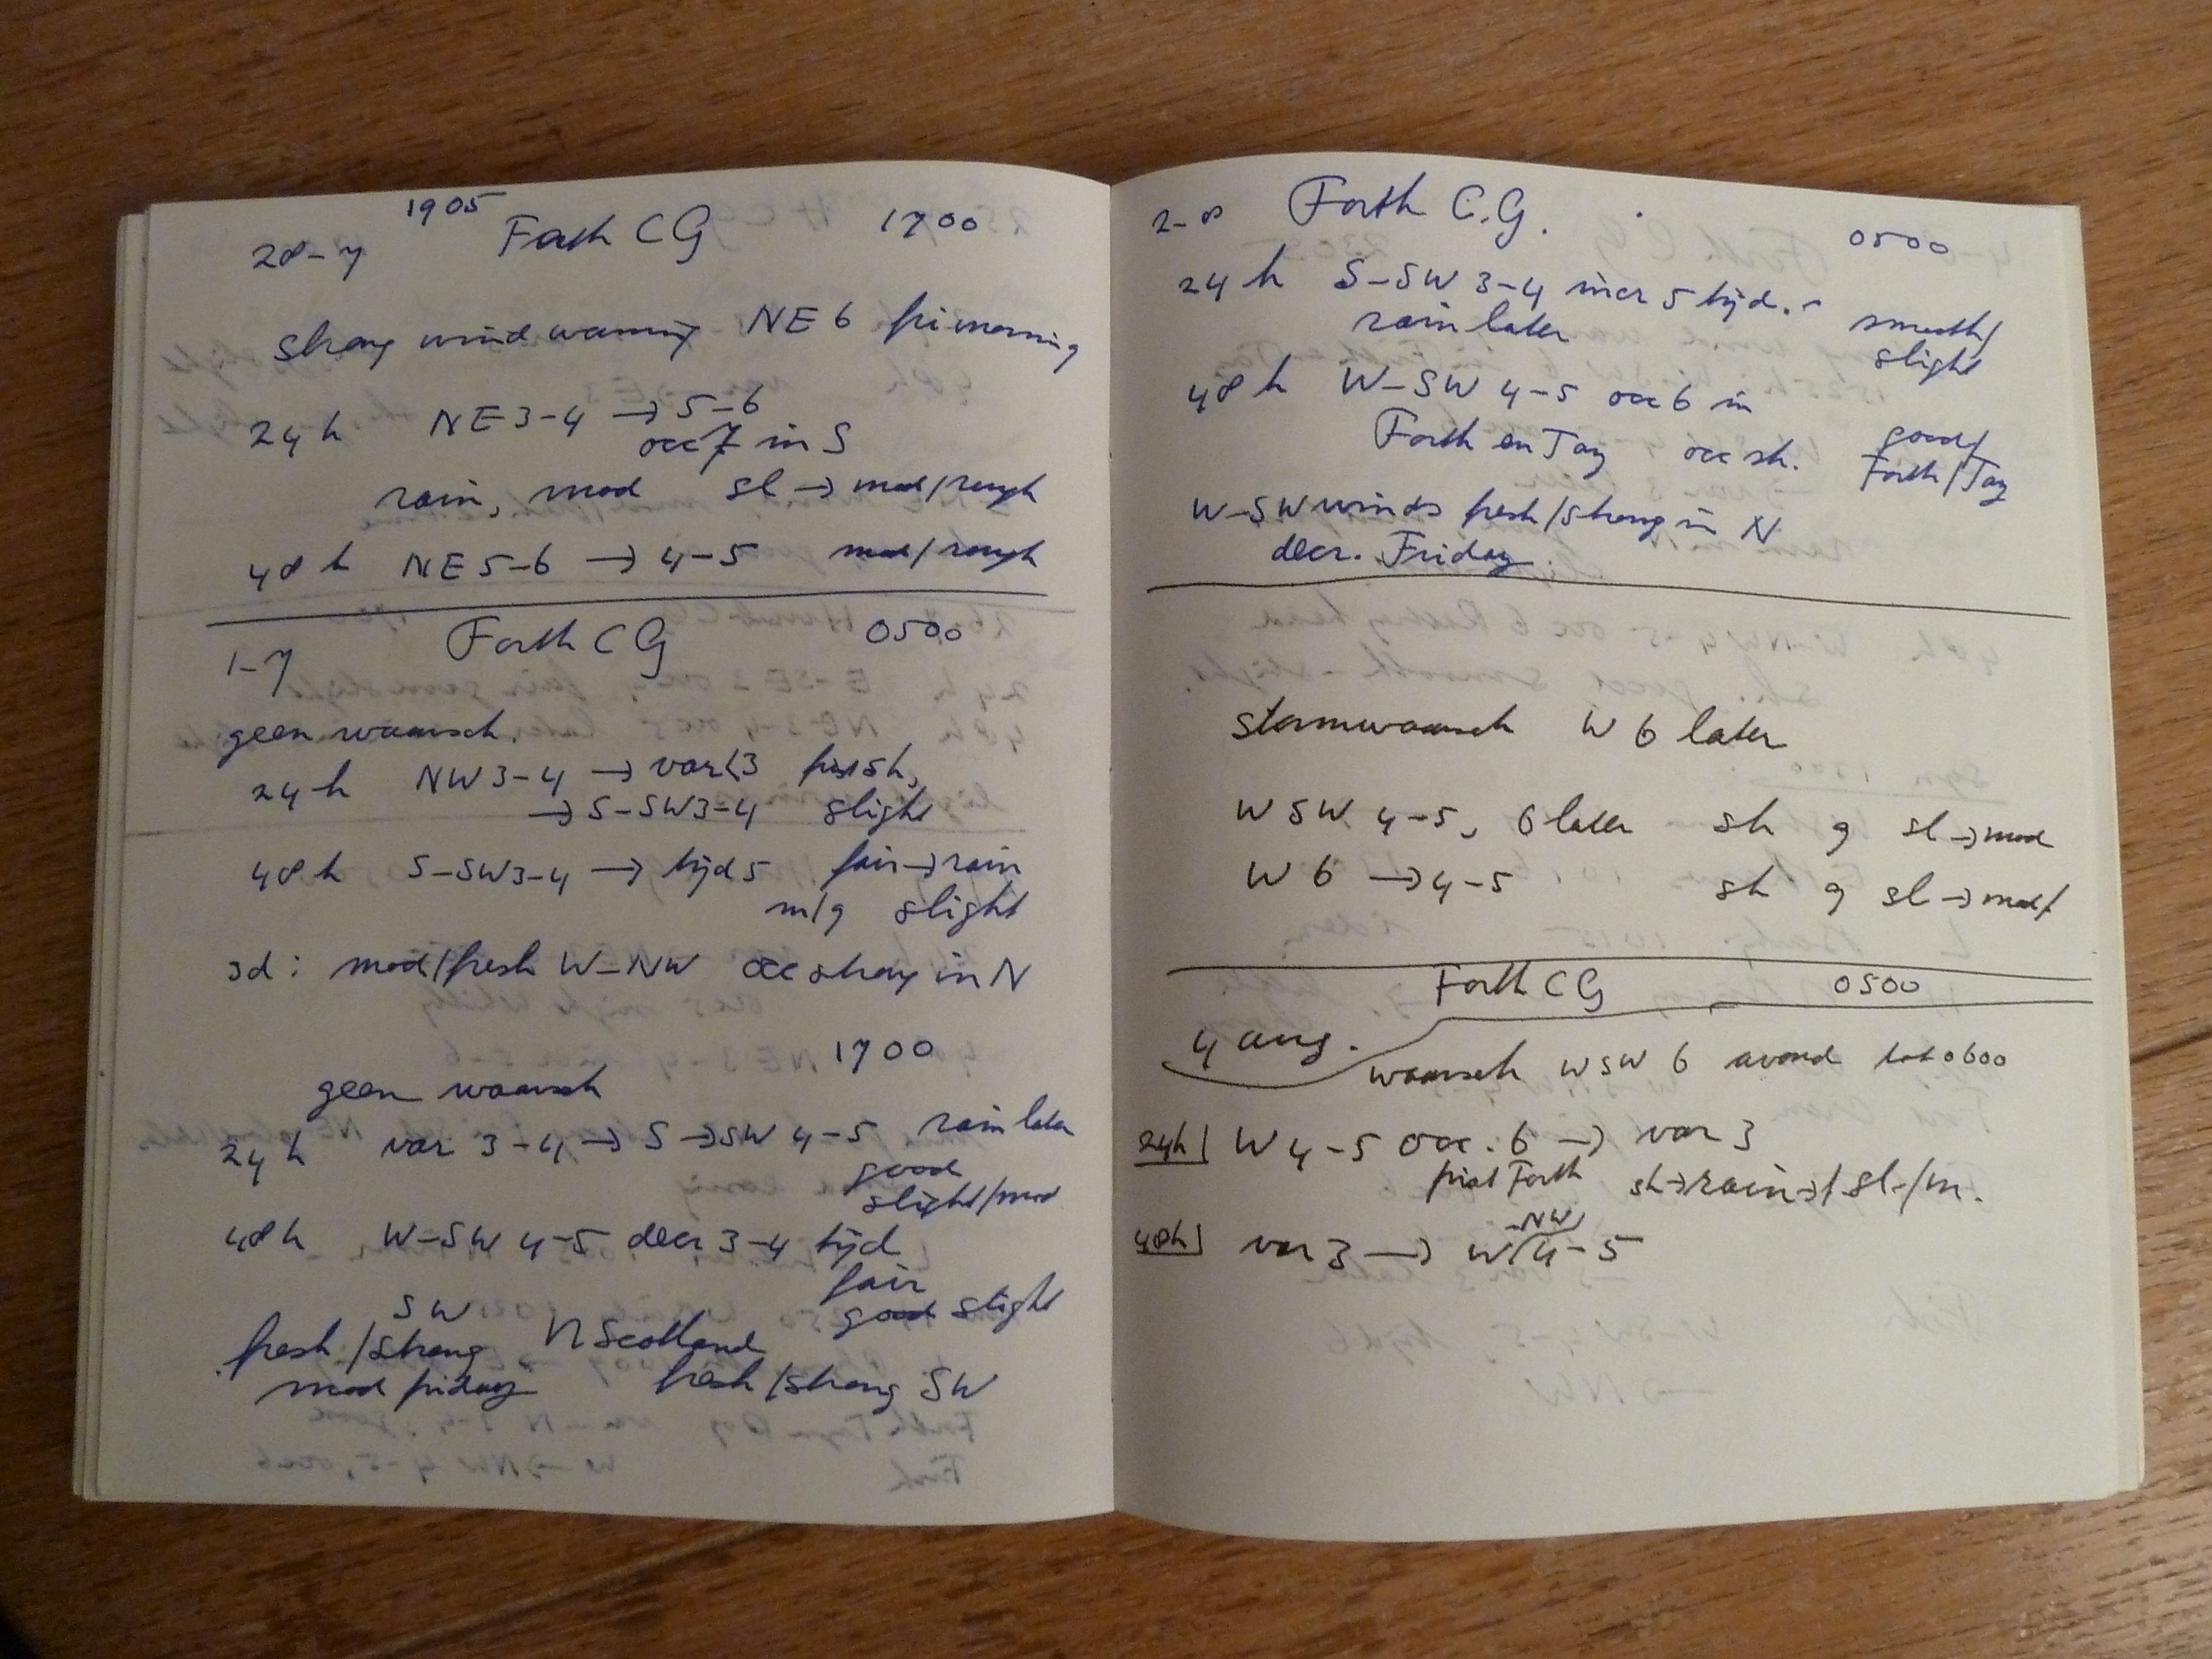 1905 Forth CG 1700
28-7
strong wind warning NE 6 fri morning
24 h NE 3-4 → 5-6
occ 7 in S
rain, mod sl → mod/rough
48 h NE 5-6 → 4-5 mod/rough
Forth CG 0500
1-7
geen waarsch.
24 h NW 3-4 → var<3 sh,
→ S-SW 3-4 slight
48 h S-SW 3-4 → tijd 5 fair → rain
m/g slight
3d: mod/fresh W-NW occ strong in N
1700
geen waarsch
24 h var 3-4 → S → SW 4-5 rain later
good
slight/mod
48 h W-SW 4-5 decr 3-4 tijd
fair
good slight
SW
fresh/strong N Scotland
mod friday fresh/strong SW
2-8 Forth C.G. 0500
24 h S-SW 3-4 incr 5 tijd.
rain later smooth/
slight
48 h W-SW 4-5 occ 6 in
Forth en Tay occ sh. good/
Forth/Tay
W-SW winds fresh/strong in N
decr. Friday.
stormwaarsch W 6 later
WSW 4-5, 6 later sh g sl → mod
W 6 → 4-5 sh g sl → mod/
Forth CG 0500
4 aug.
waarsch WSW 6 avond tot 0600
24h W 4-5 occ. 6 → var 3
first Forth sh → rain → sl/m.
48h var 3 → W-NW 4-5